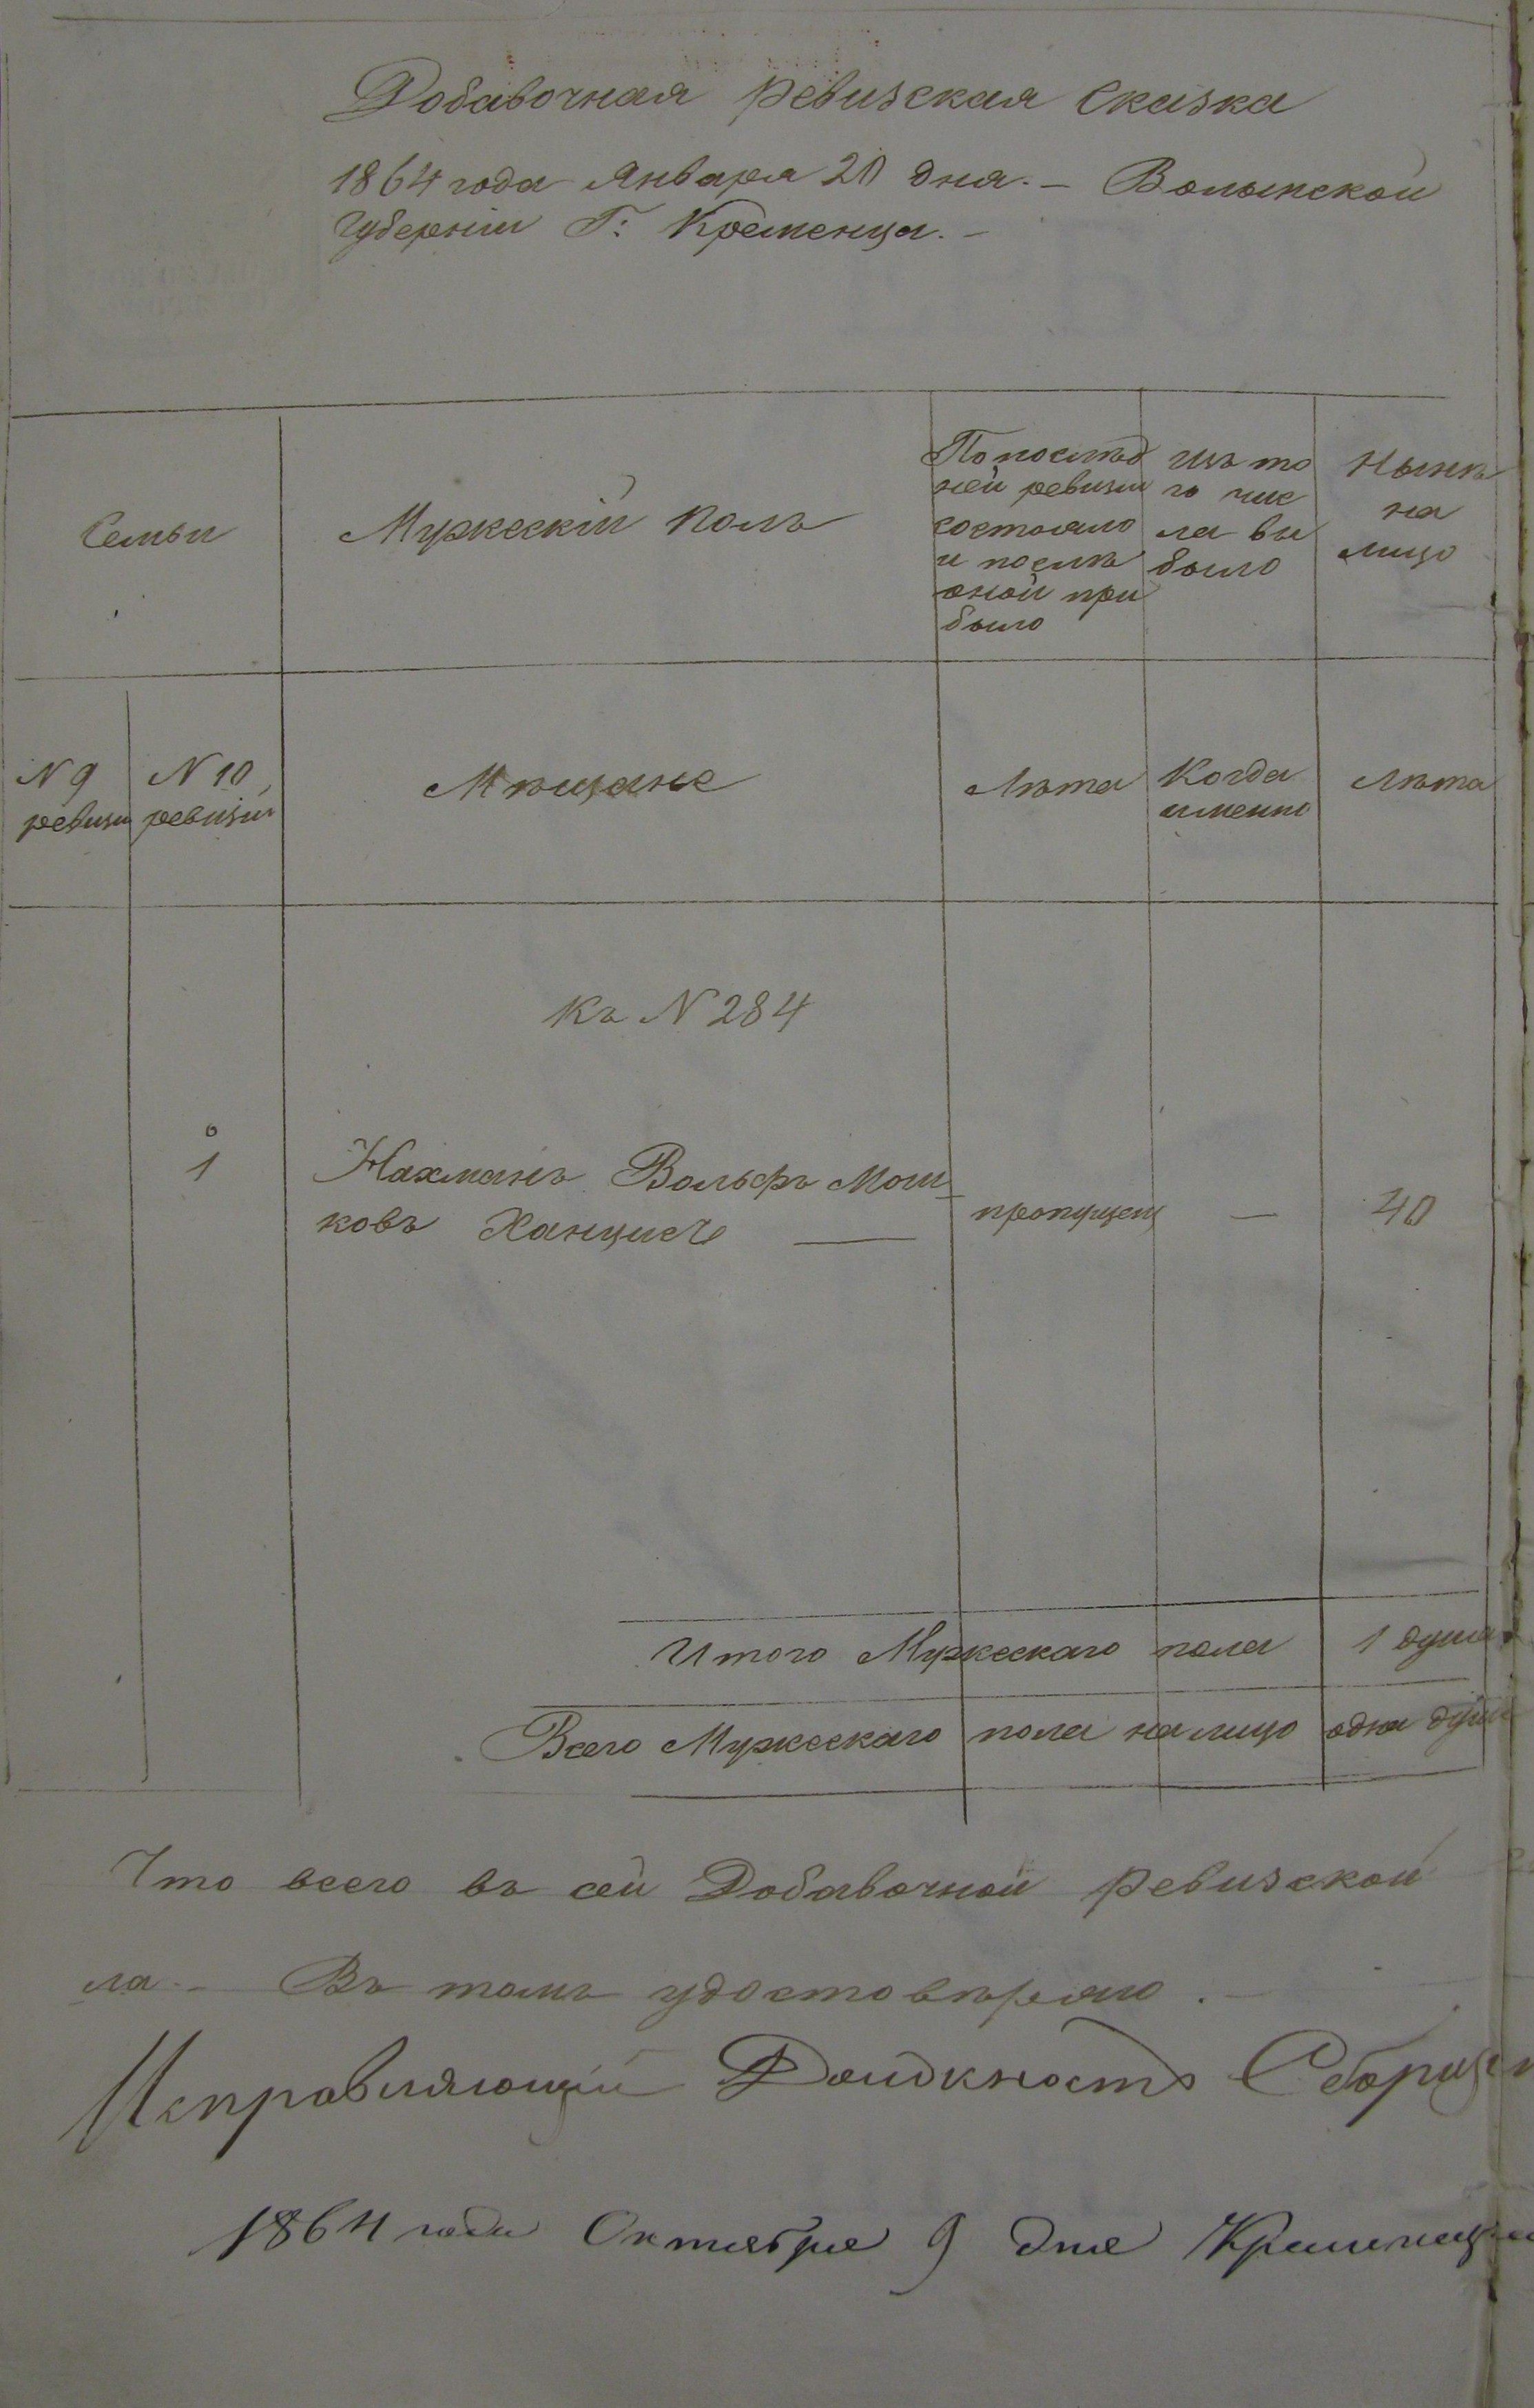 Добавочная Ревизская Сказка
1864 года Января 20 дня. – Волынской
Губерніи Г: Кременца. –
Семьи
Мужескій Полъ
По послѣд
ней ревизіи
состояло
и послѣ
оной при
было
Изъ то
го чис
ла вы
было
Нынѣ
на
лицо
N 9
ревизіи
N 10
ревизіи
Мѣщане
Лѣта
Когда
именно
Лѣта
Къ N 284
1
Нахманъ Вольфъ Мош
ковъ Ханцисъ —
пропущен
—
40
Итого Мужескаго пола 1 душа
Всего Мужескаго пола на лицо одна душа
Что всего въ сей Добавочной Ревизской
ла. – Въ томъ удостовѣряю. –
Исправляющій Должность Сборщи
1864 года Октября 9 дня Кременец